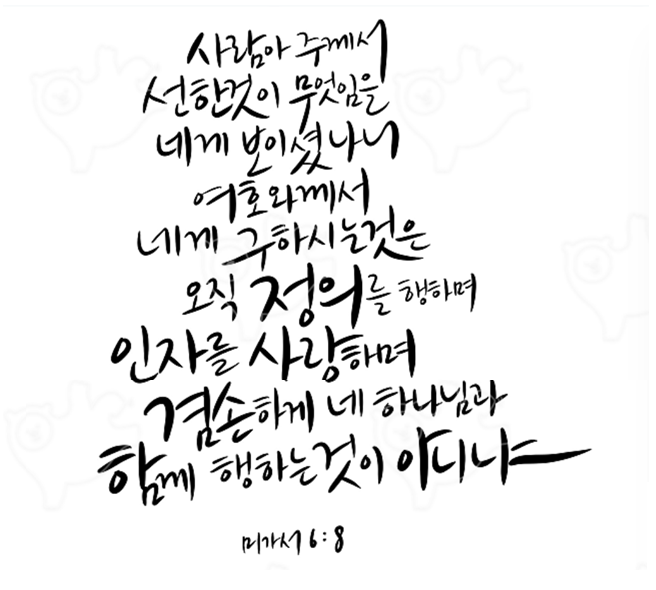 사람아 주께서
선한것이 무엇임을
네게 보이셨나니
여호와께서
네게 구하시는것은
오직 정의를 행하며
인자를 사랑하며
겸손하게 네 하나님과
함께 행하는것이 아니냐
미가서 6:8